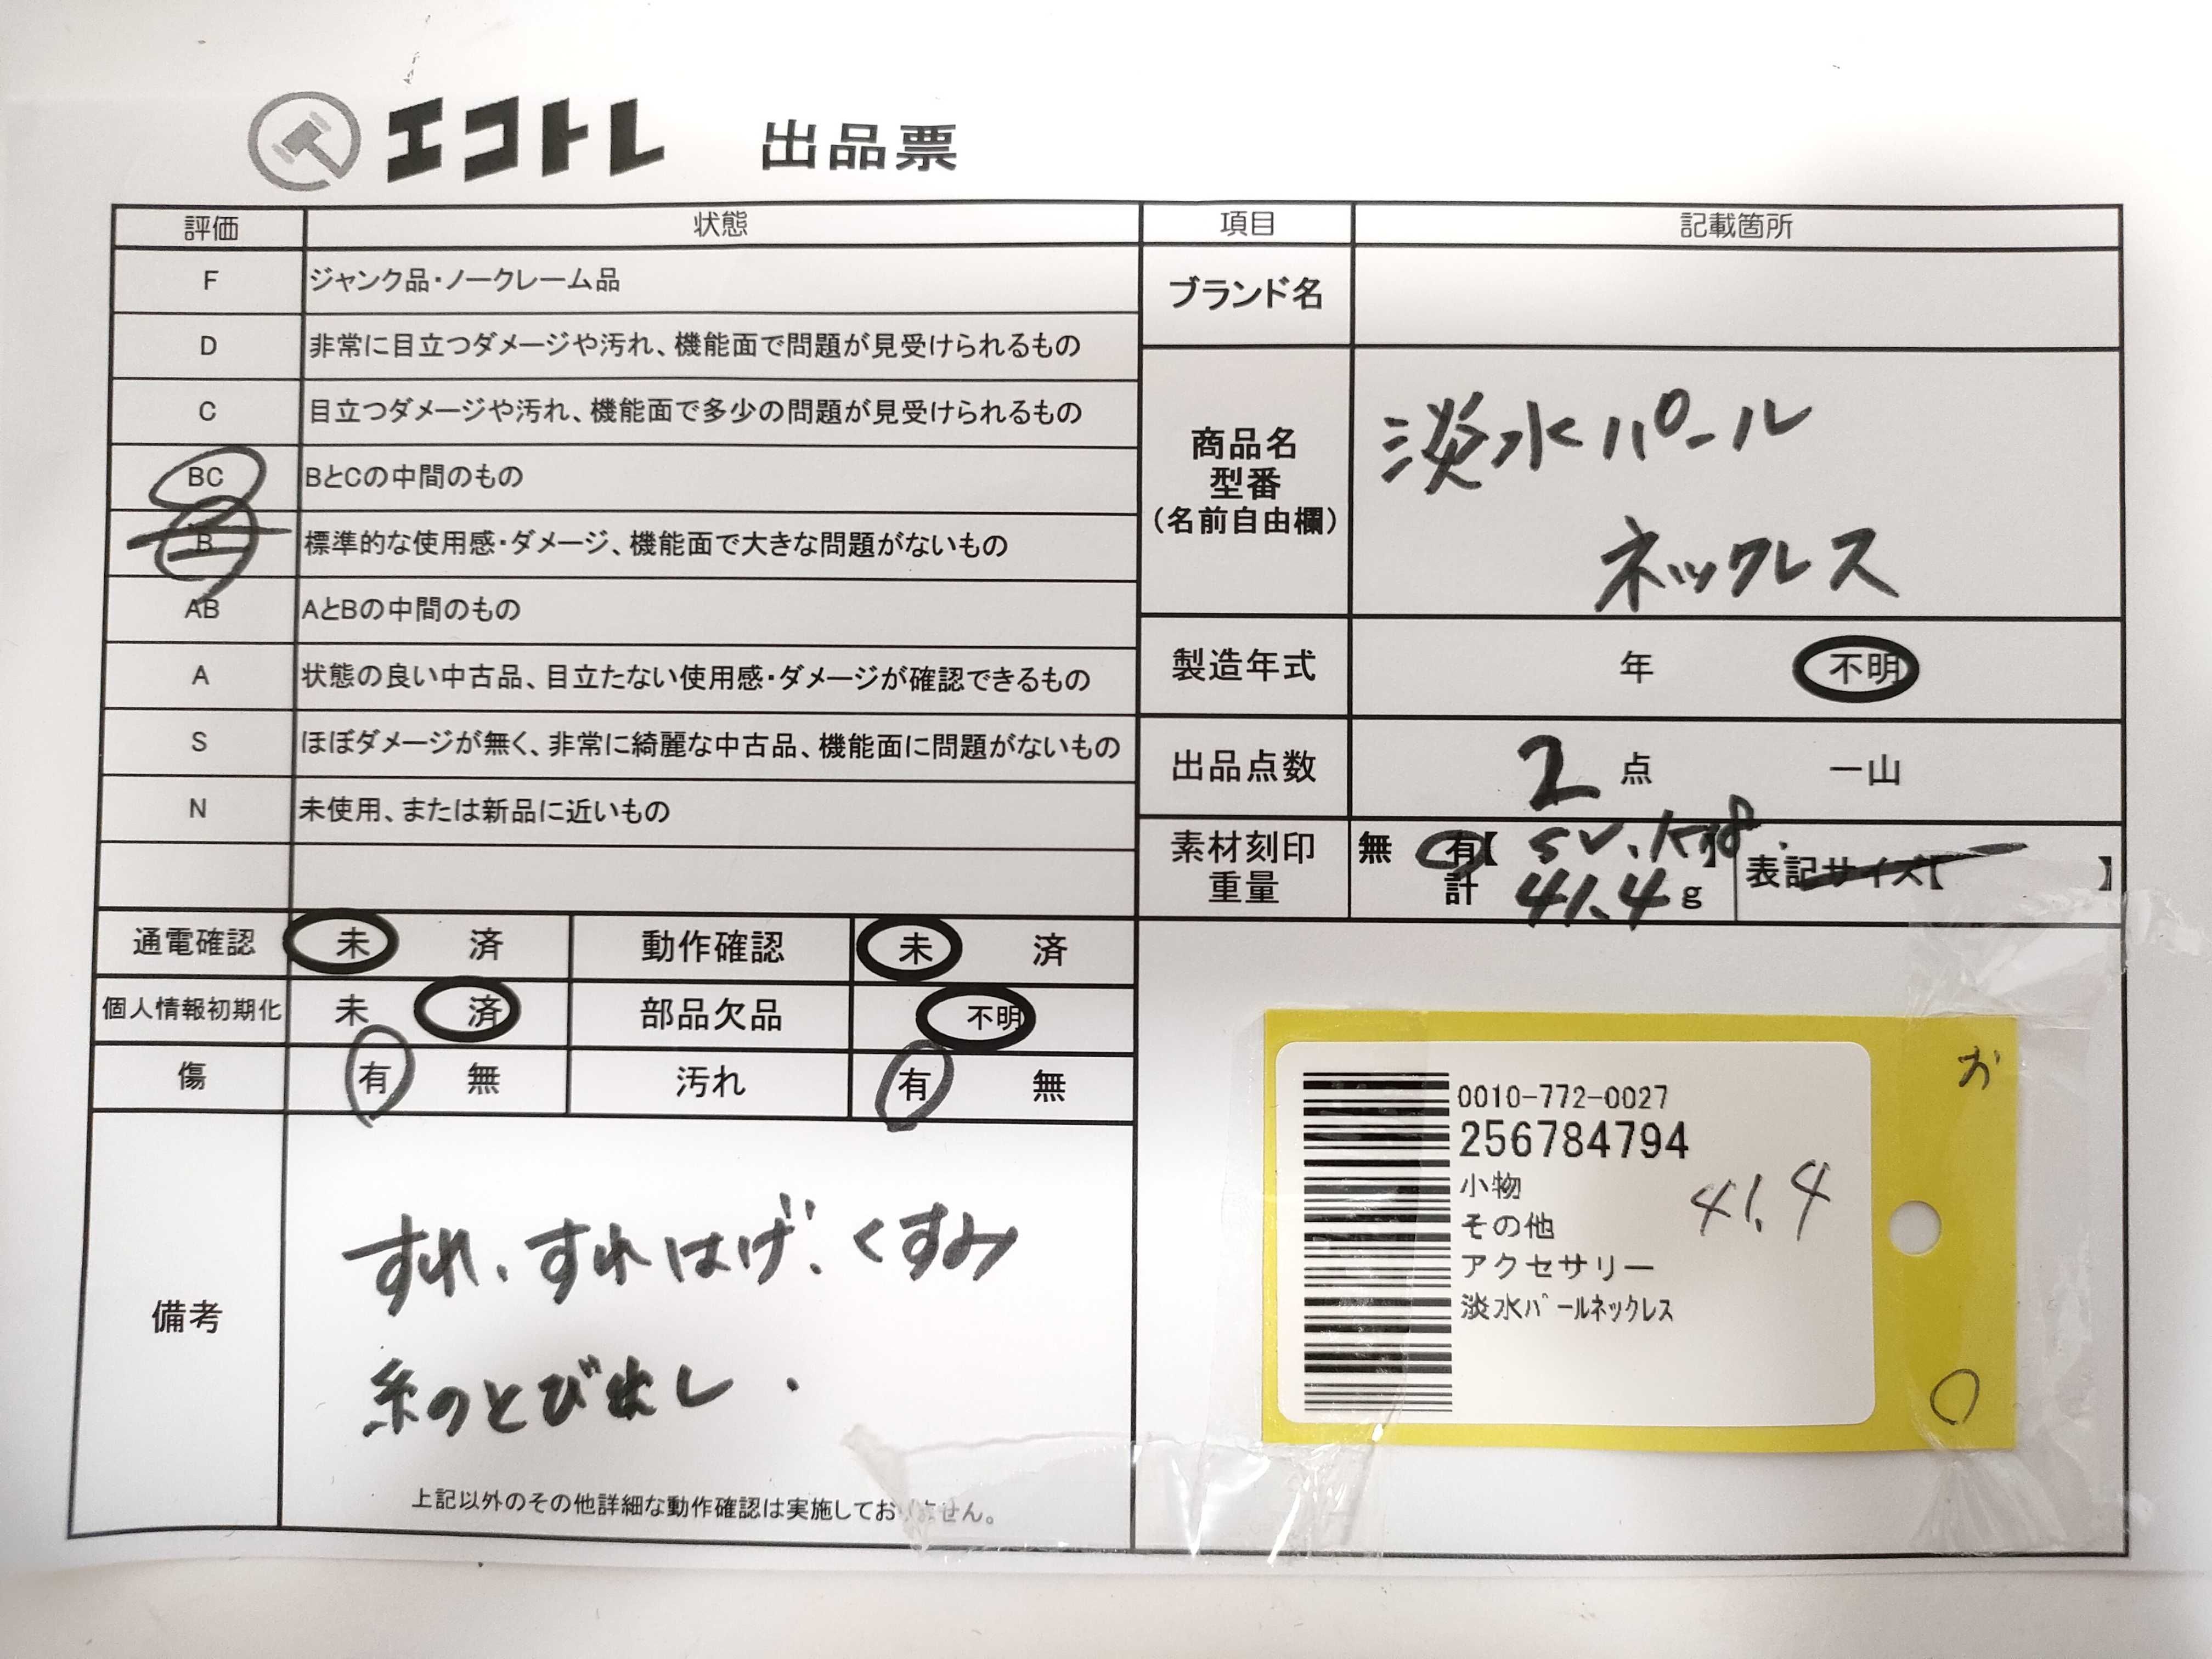 エコトレ 出品票
評価 状態
F ジャンク品・ノークレーム品
D 非常に目立つダメージや汚れ、機能面で問題が見受けられるもの
C 目立つダメージや汚れ、機能面で多少の問題が見受けられるもの
BC BとCの中間のもの
B 標準的な使用感・ダメージ、機能面で大きな問題がないもの
AB AとBの中間のもの
A 状態の良い中古品、目立たない使用感・ダメージが確認できるもの
S ほぼダメージが無く、非常に綺麗な中古品、機能面に問題がないもの
N 未使用、または新品に近いもの
通電確認 未 済 動作確認 未 済
個人情報初期化 未 済 部品欠品 不明
傷 有 無 汚れ 有 無
備考
すれ、すれはげ、くすみ
糸のとび出し.
上記以外のその他詳細な動作確認は実施しておりません。
項目 記載箇所
ブランド名
商品名
型番
(名前自由欄)
淡水パール
ネックレス
製造年式 年 不明
出品点数 2 点 一山
素材刻印
重量
無 有【 SV.K18 】
計 41.4 g
表記サイズ【 】
0010-772-0027
256784794
小物
その他
アクセサリー
淡水パールネックレス
41.4
お